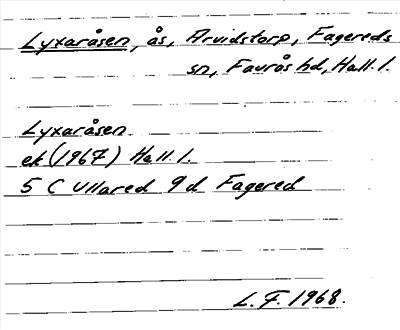 Lyxaråsen, ås, Arvidstorp, Fagereds
sn, Faurås hd, Hall. l.
Lyxaråsen
ek (1967) Hall l.
5 C Ullared 9d Fagered
L. F. 1968.